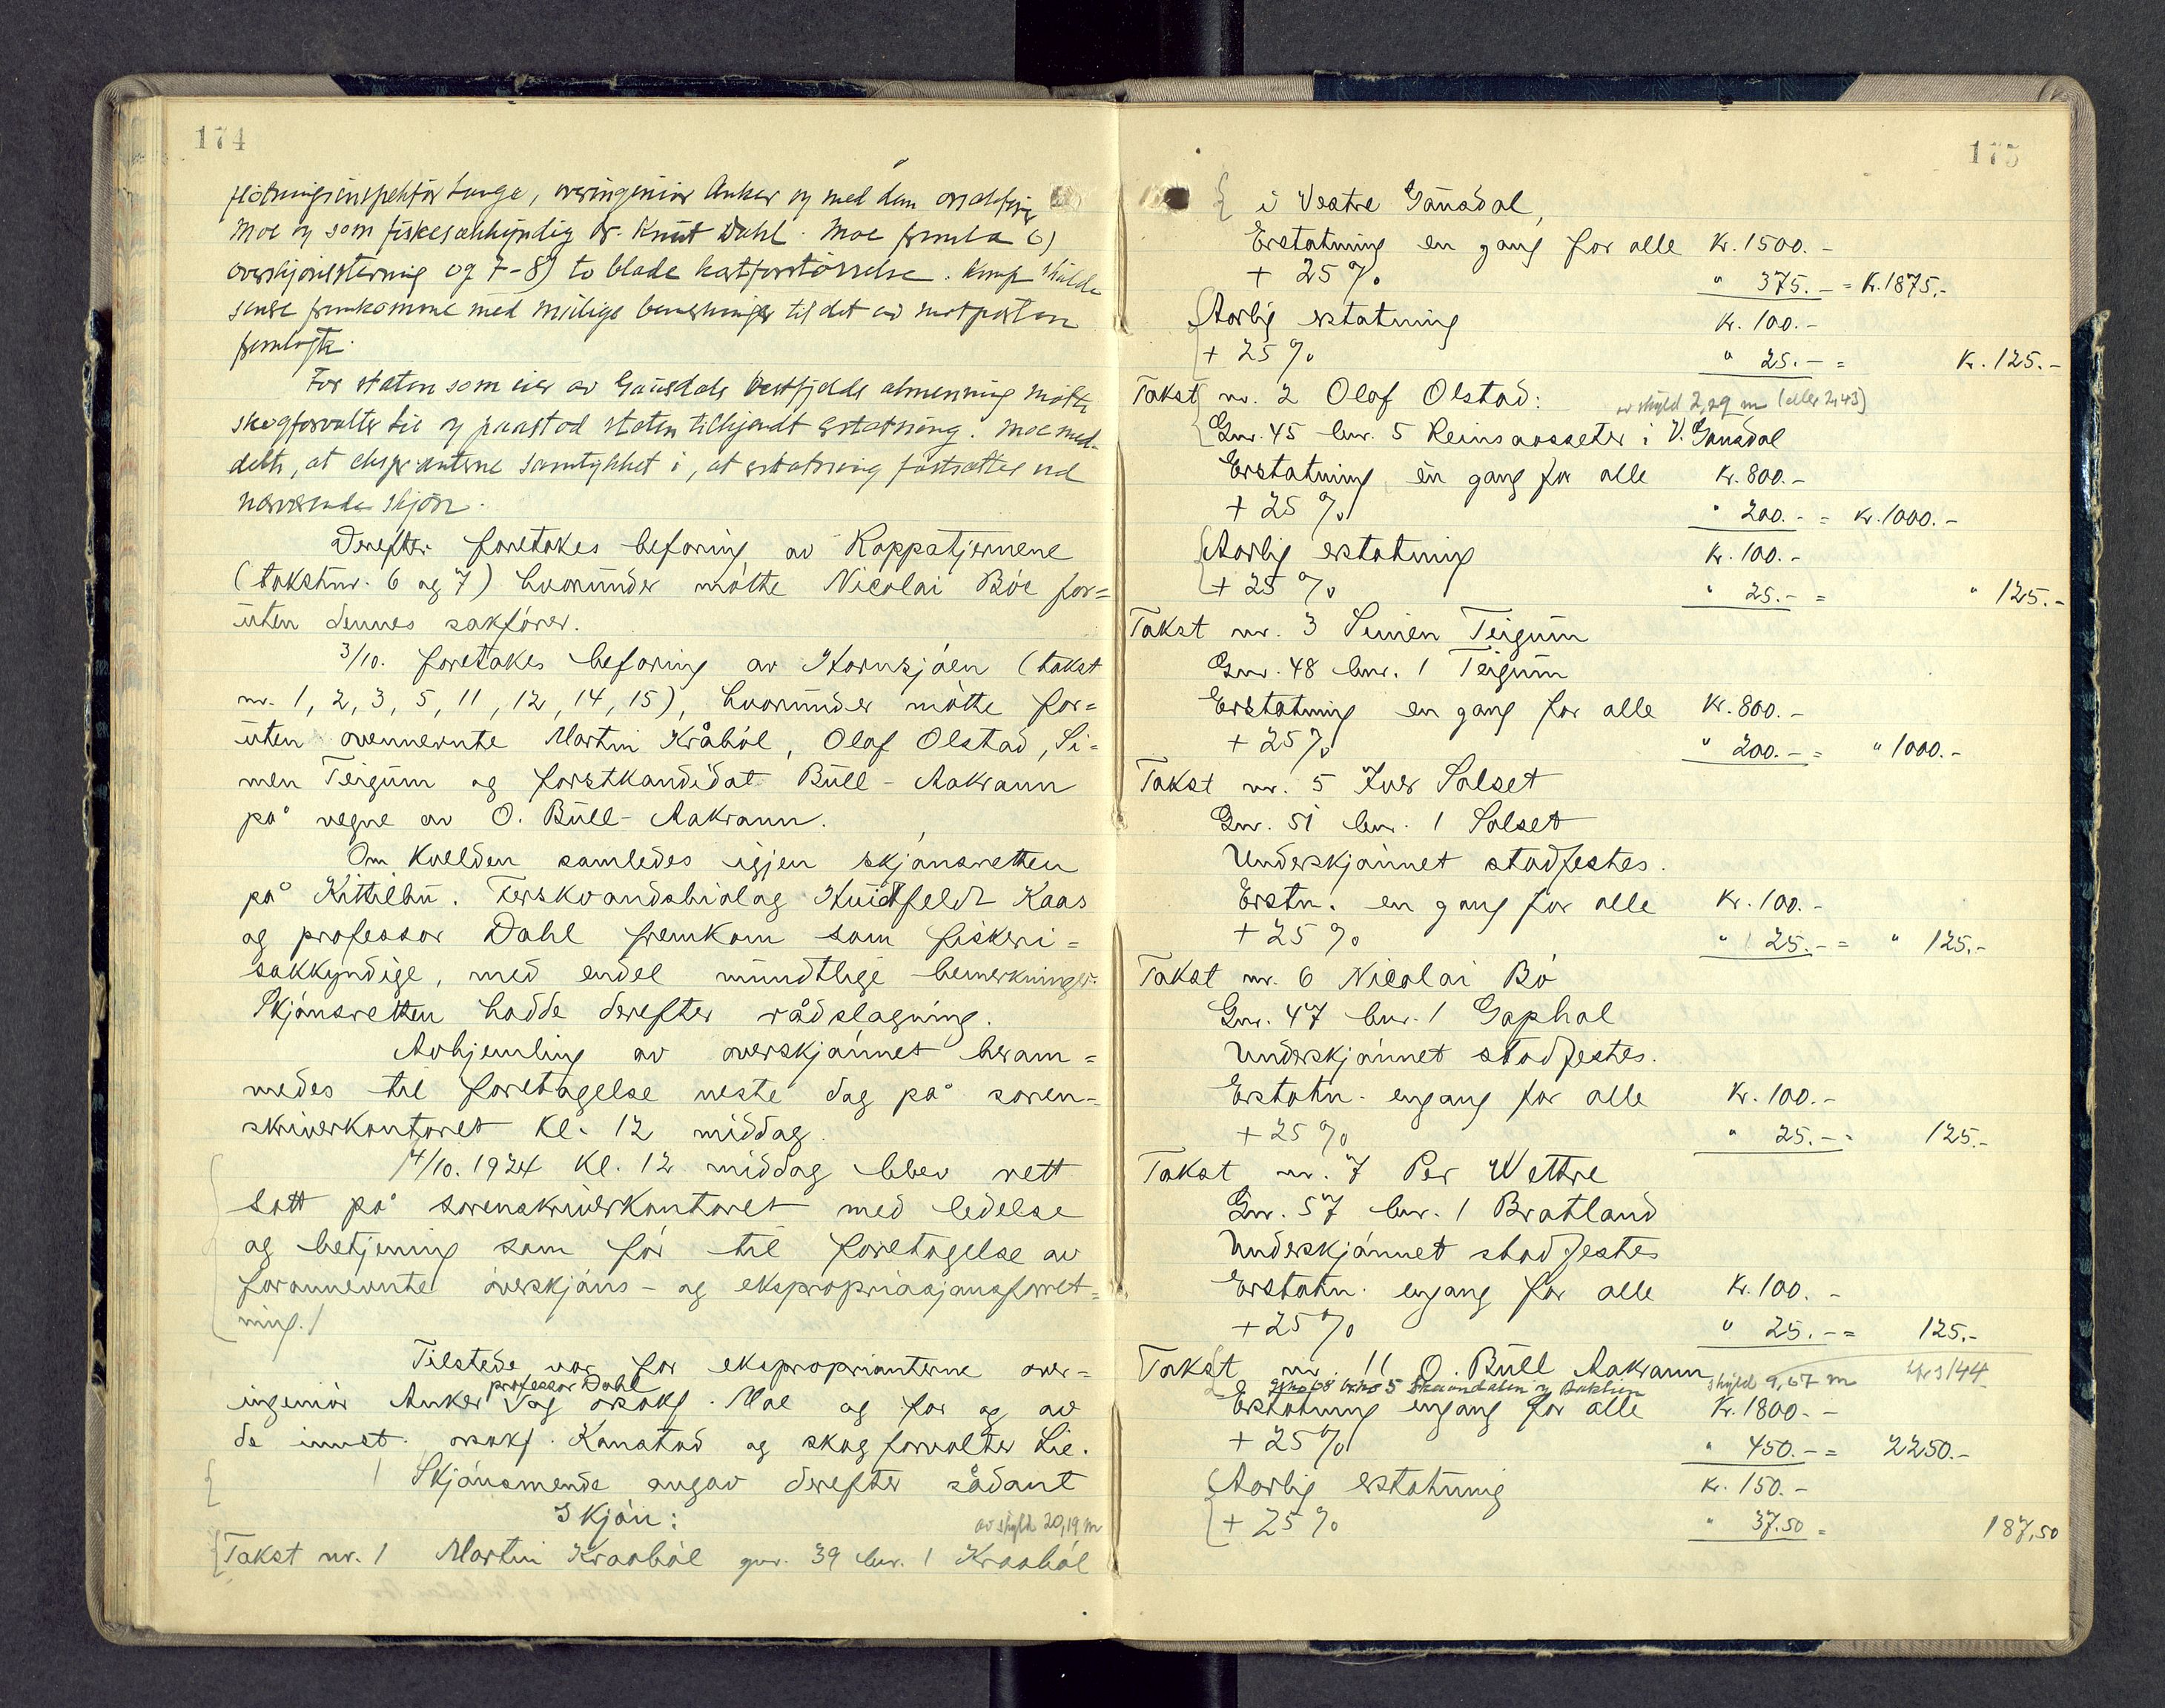 174
fløtningsinspektør Lange, overingeniør Anker og med dem orsakfører
Moe og som fiskesakkyndig dr. Knut Dahl. Moe fremla 6)
overskjønsstevning og 7-8) to blade kartforstørrelse. skulde
senere fremkomme med mulige bemerkninger til det av motparten
fremlagte.
For staten som eier av Gausdals Vestfjelds almenning møtte
skogforvalter Lie og paastod staten tilkjendt erstatning. Moe med-
delte, at eksprantene samtykket i, at erstatning fastsættes ved
nærværende skjøn.
Derefter foretokes befaring av Roppatjernene
(takstnr. 6 og 7) hvorunder møtte Nicolai Böe for=
uten dennes sakfører.
3/10. foretokes befaring av Hornsjøen (takst
nr. 1, 2, 3, 5, 11, 12, 14, 15), hvorunder møtte for=
uten ovennevnte Martin Kråból, Olaf Olstad, Si=
men Teigum og forstkandidat Büll-Aakrann
på vegne av O. Büll-Aakrann.
Om kvelden samledes igjen skjønsretten
på Kittilbu. Ferskvandsbiolog Huitfeldt Kaas
og professor Dahl fremkom som fiskeri=
sakkyndige, med endel mundtlige bemerkninger.
Skjønsretten hadde derefter rådslagning.
Avhjemling av overskjønnet beram=
medes til foretagelse neste dag på soren=
skriverkontoret kl. 12 middag.
4/10. 1924 kl. 12 middag blev rett
satt på sorenskriverkontoret med ledelse
og betjening som før til foretagelse av
forannevnte overskjøns- og ekspropriasjonsforret=
ning.
Tilstede var for eksproprianterne over=
ingeniør Anker professor Dahl og orsakf. Moe og for og av
de innst. orsakf. Kanstad og skogforvalter Lie.
Skjønsmende avgav derefter sådant
Skjøn:
av skyld 20,19 m
Takst nr. 1 Martin Kraaból gnr. 39 bnr. 1 Kraaból
175
i Vestre Gausdal,
Erstatning en gang for alle Kr. 1500.-
+ 25 % " 375.- = Kr. 1875.-
Aarlig erstatning Kr. 100.-
+ 25 % " 25.- = Kr. 125.-
Takst nr. 2 Olaf Olstad: av skyld 2,29 m (eller 2,43)
Gnr. 45 bnr. 5 Reinsaasseter i V. Gausdal
Erstatning en gang for alle Kr. 800.-
+ 25 % " 200.- = Kr. 1000.-
Aarlig erstatning Kr. 100.-
+ 25 % " 25.- = " 125.-
Takst nr. 3 Simen Teigum
Gnr. 48 bnr. 1 Teigum
Erstatning en gang for alle Kr. 800.-
+ 25 % " 200.- = " 1000.-
Takst nr. 5 Iver Solset
Gnr. 51 bnr. 1 Solset
Underskjønnet stadfestes.
Erstn. en gang for alle Kr. 100.-
+ 25 % " 25.- = " 125.-
Takst nr. 6 Nicolai Bö
Gnr. 47 bnr. 1 Gaphol
Underskjønnet stadfestes.
Erstatn. engang for alle Kr. 100.-
+ 25 % " 25.- = 125.-
Takst nr. 7 Per Wettre
Gnr. 57 bnr. 1 Bratland
Underskjønnet stadfestes
Erstatn. engang for alle Kr. 100.-
+ 25 % " 25.- = 125.-
Takst nr. 11 O. Büll Aakrann skyld 9,67 m
Erstatning engang for alle Kr. 1800.-
+ 25 % " 450.- = 2250.-
Aarlig erstatning Kr. 150.-
+ 25 % " 37.50 = 187,50